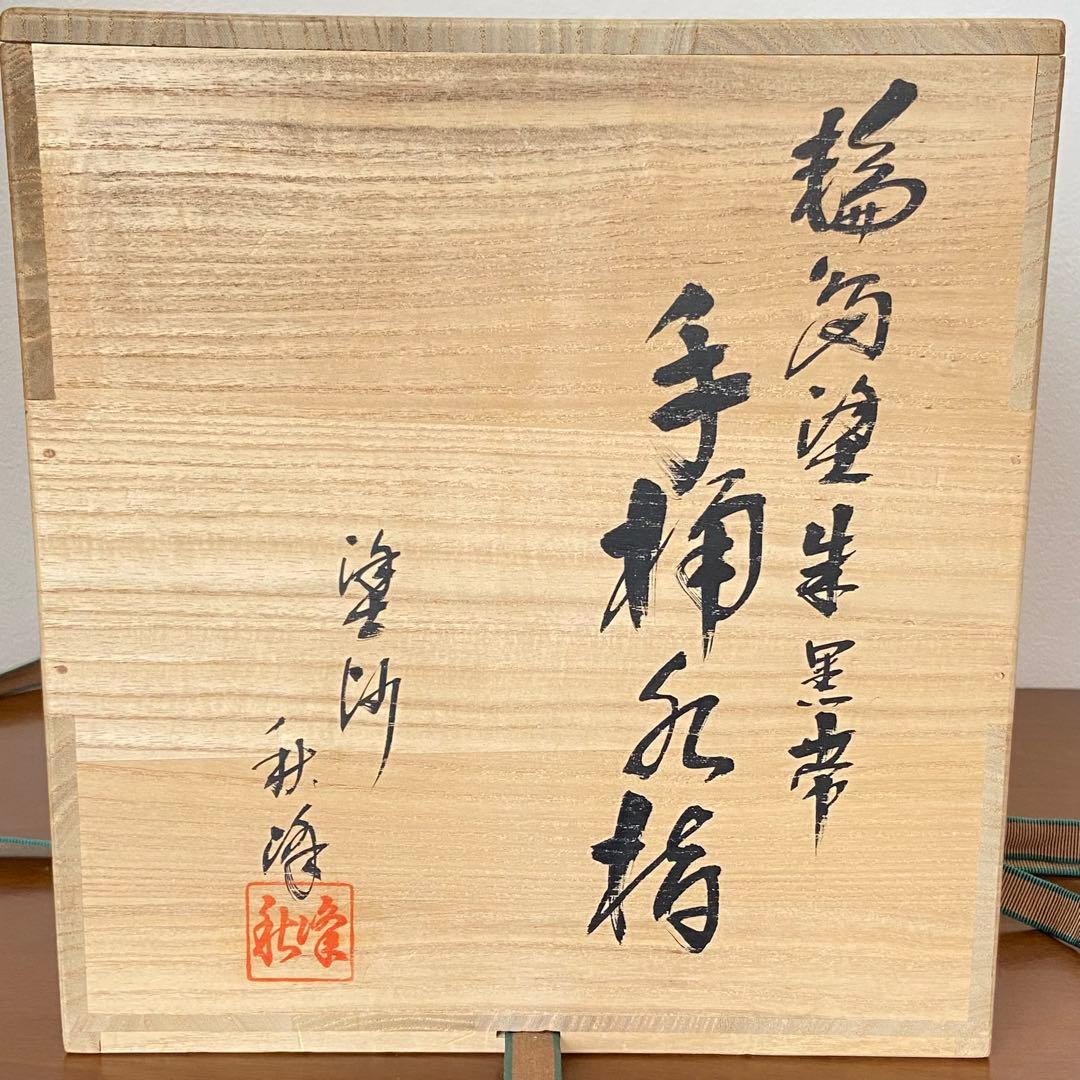 輪島塗朱黒帯
手桶水指
塗師
秋峰
秋峰